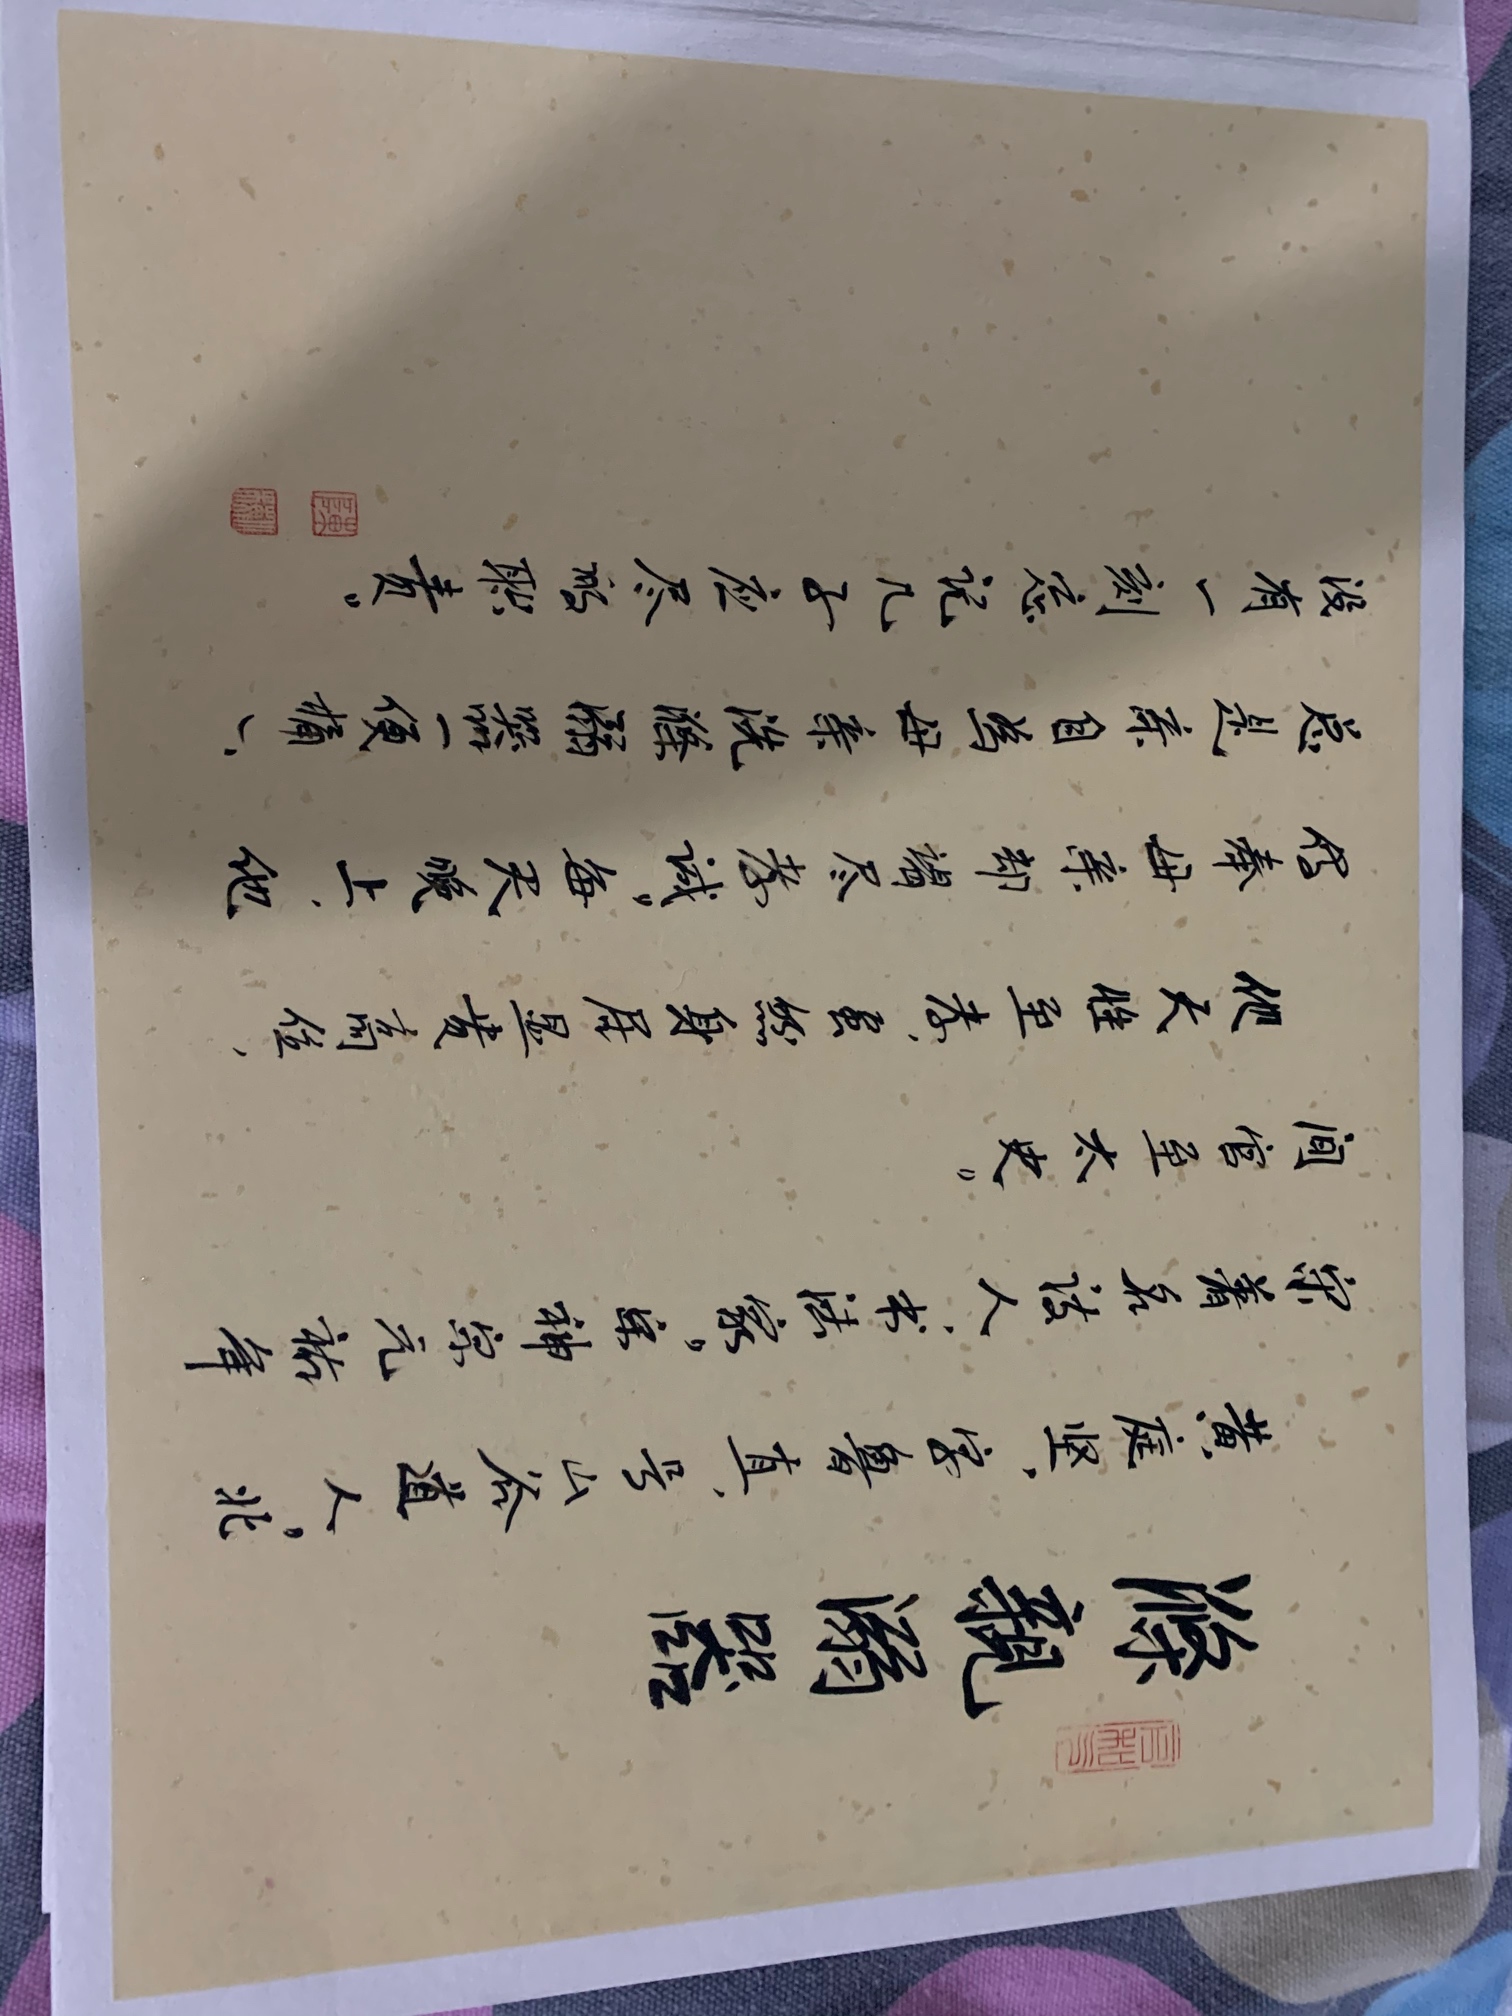 涤親溺器
黄庭坚，字鲁直，号山谷道人，北
宋著名诗人、书法家，宋神宗元祐年
间官至太史。
他天性至孝，虽然身居显贵高位，
侍奉母亲却竭尽孝诚。每天晚上，他
总是亲自为母亲洗涤溺器一便桶，
没有一刻忘记儿子应尽的职责。